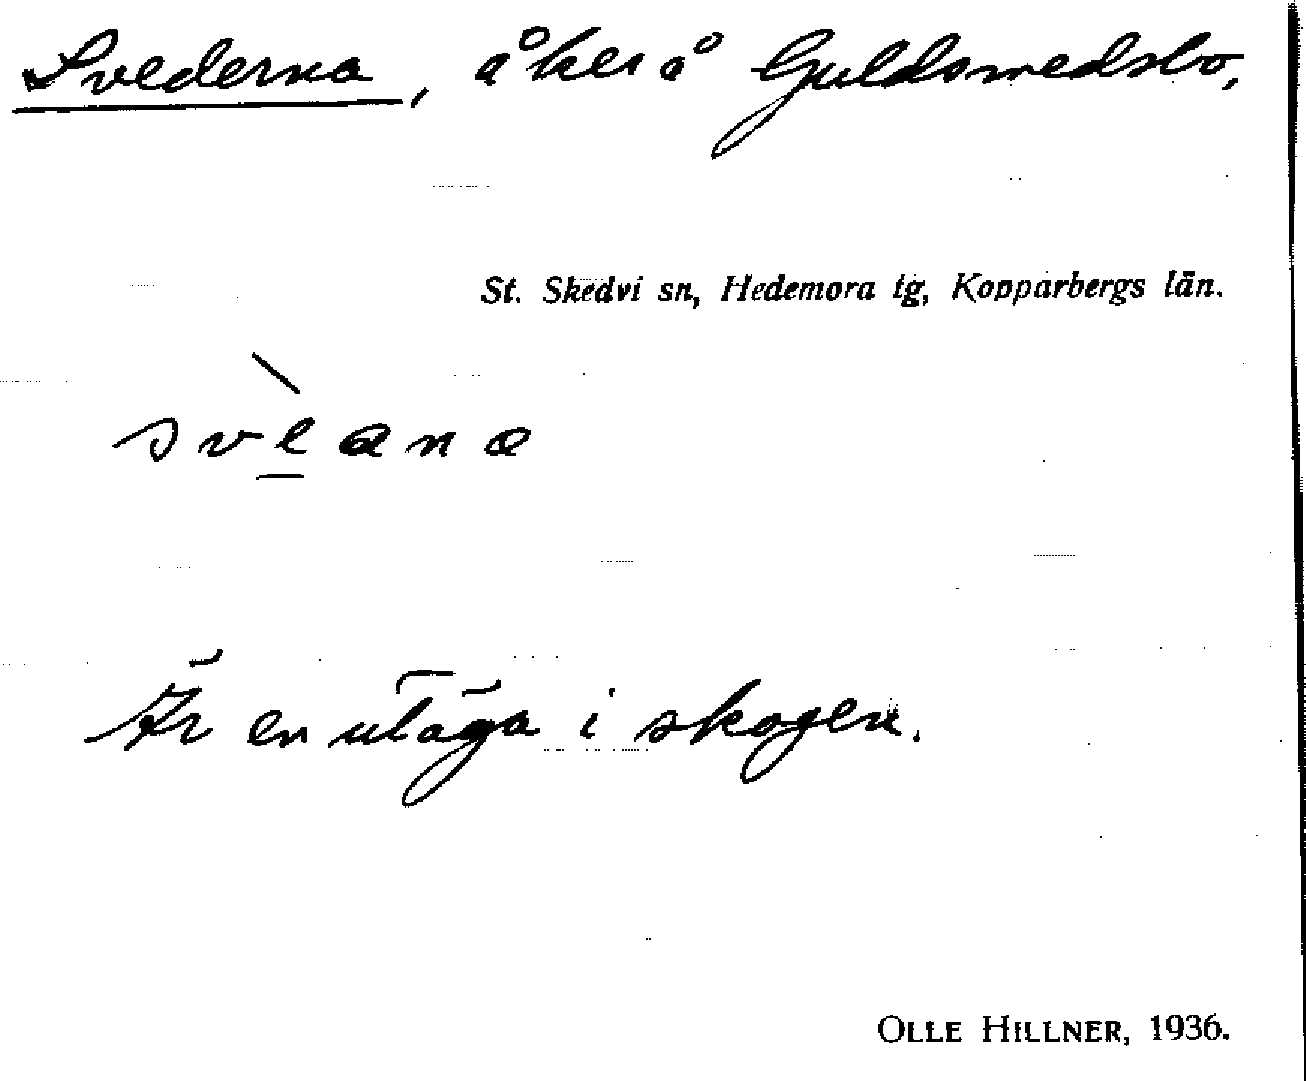 Svederna, åker å Guldsmedsbo,
St. Skedvi sn, Hedemora tg, Kopparbergs län.
svèana
Är en utäga i skogen.
OLLE HILLNER, 1936.